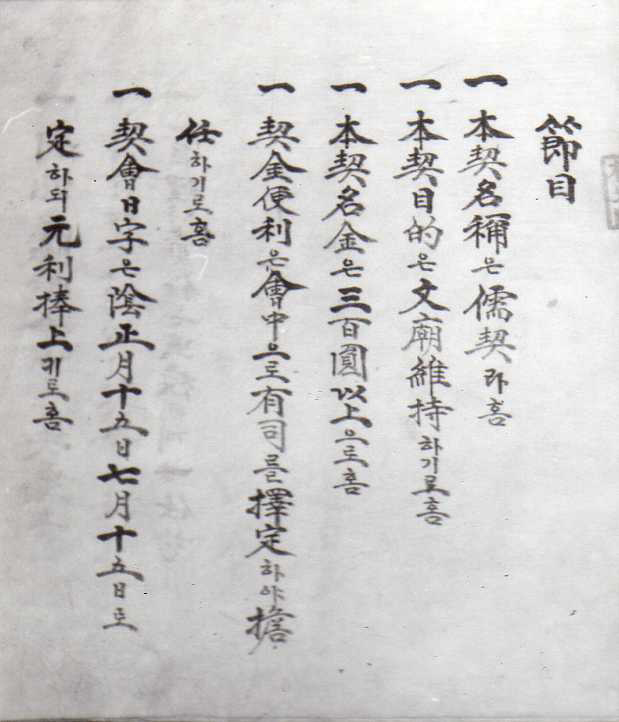 節目
一 本契名稱은儒契라홈
一 本契目的은文廟維持하기로홈
一 本契名金은三百圓以上으로홈
一 契金便利은會中으로有司를擇定하야擔
任하기로홈
一 契會日字은陰正月十五日七月十五日도
定하되元利捧上키로홈